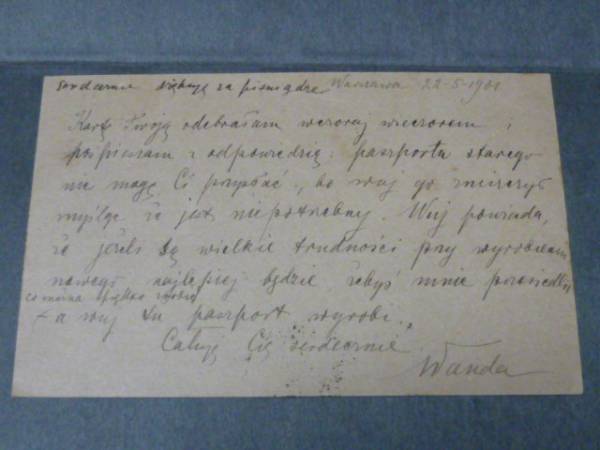 Serdecznie dziękuję za pieniądze Warszawa 22-5-1901
Kartę Twoją odebrałam wczoraj wieczorem i
pośpieszam z odpowiedzią; paszportu starego
nie mogę Ci przysłać, bo wuj go zniszczył
myśląc że jest niepotrzebny. Wuj powiada,
że jeżeli są wielkie trudności przy wyrobieniu
nowego najlepiej będzie żebyś mnie
co można
a wuj tu paszport wyrobi.
Całuję Cię serdecznie
Wanda